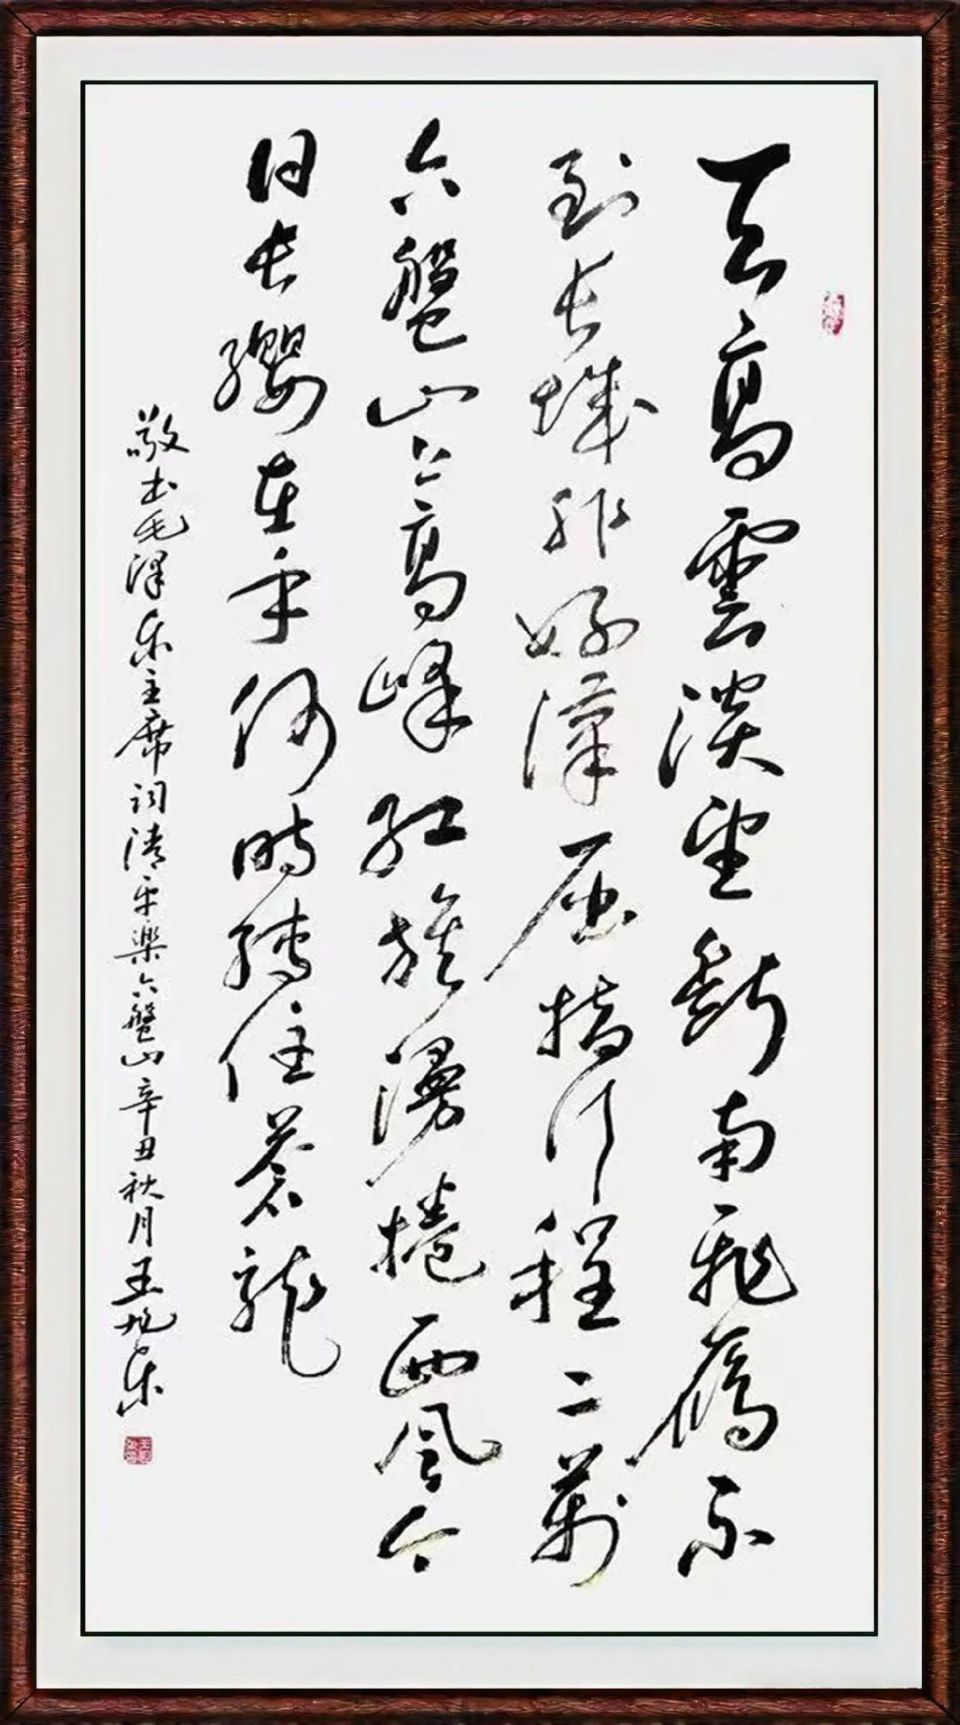 天高雲淡望斷南飛鴈不
到長城非好漢屈指行程二萬
六盤山上高峰紅旗漫捲西風今
日長纓在手何時縛住蒼龍
敬书毛泽东主席词清平樂六盤山辛丑秋月王旭东